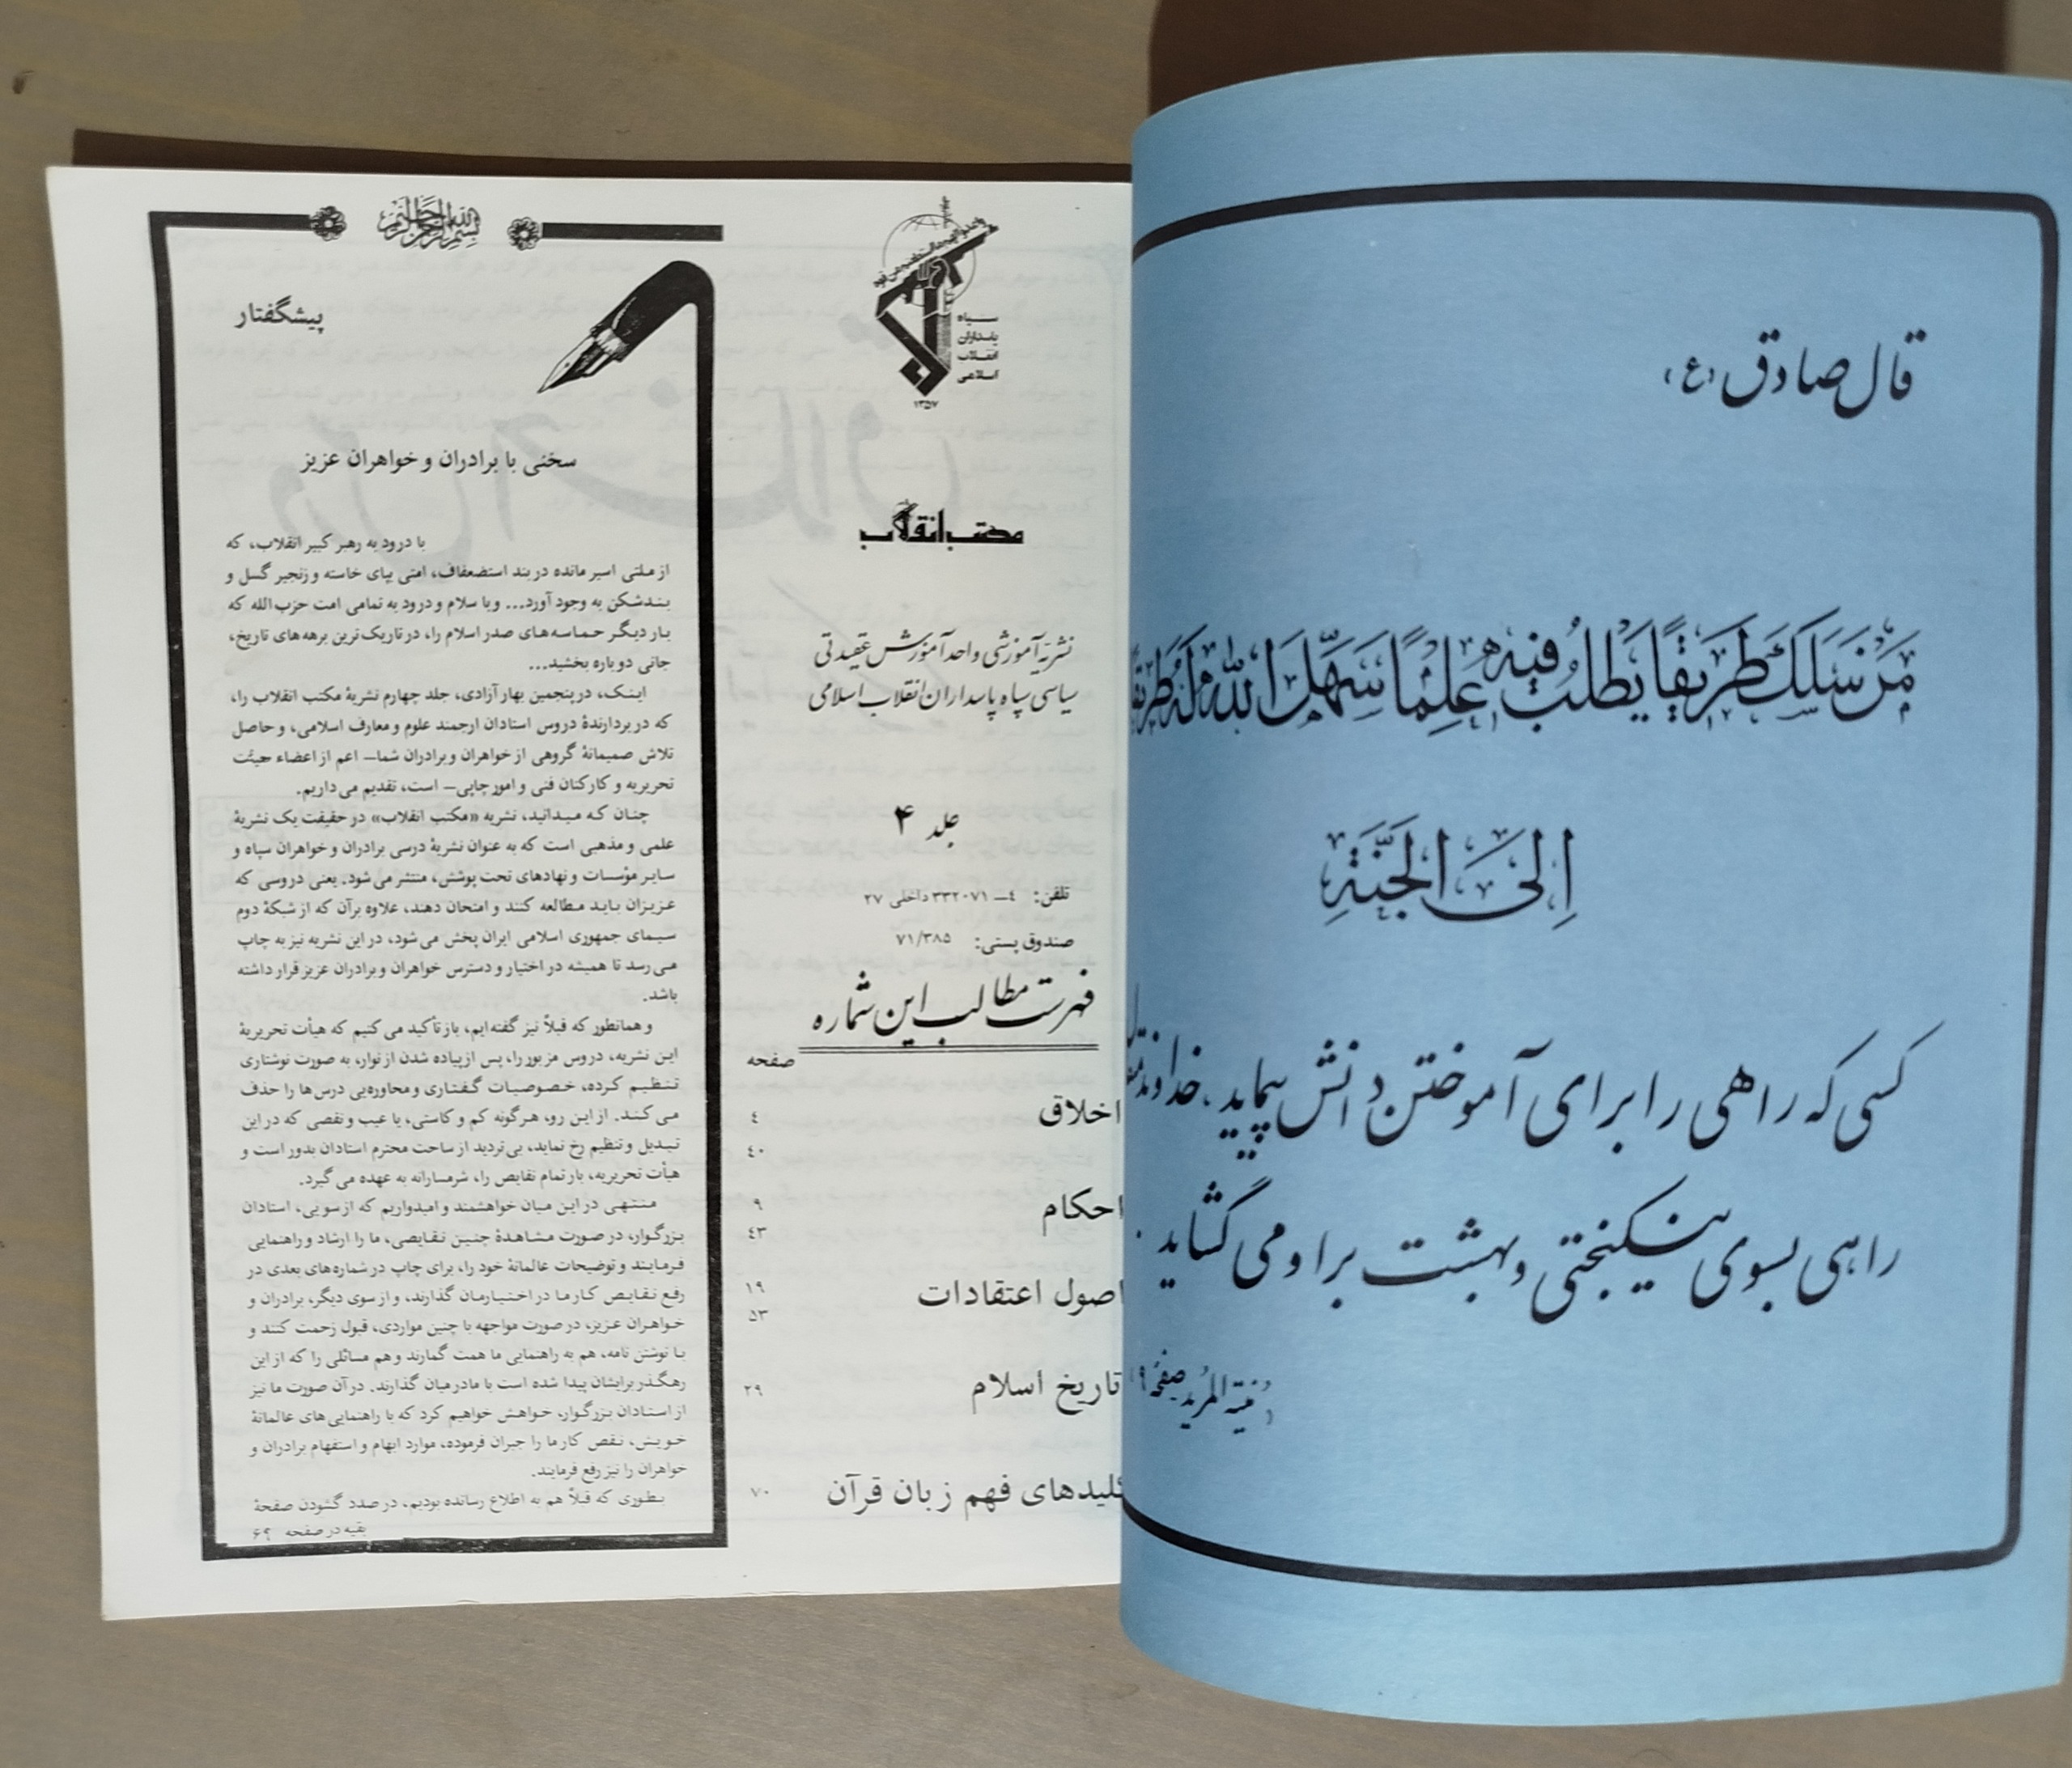 قال صادق (ع)
مَن سَلَكَ طَريقًا يَطلُبُ فيهِ عِلمًا سَهَّلَ اللهُ لَهُ طَريقًا
اِلَى الجَنَّةِ
کسی که راهی را برای آموختن دانش بپیماید، خداوند
راهی بسوی نیکبختی و بهشت بر او می گشاید.
(منیة المرید صفحه ۹
سپاه
پاسداران
انقلاب
اسلامی
۱۳۵۷
مکتب انقلاب
نشریهٔ آموزشی واحد آموزش عقیدتی
سیاسی سپاه پاسداران انقلاب اسلامی
جلد ۴
تلفن: ٤ــ ۳۳۲۰۷۱ داخلی ۲۷
صندوق پستی: ۷۱/۳۸۵
فهرست مطالب این شماره
صفحه
اخلاق ٤
٤۰
احکام ۹
٤۳
اصول اعتقادات ۱۹
۵۳
تاریخ اسلام ۲۹
کلیدهای فهم زبان قرآن ۷۰
بسم الله الرحمن الرحیم
پیشگفتار
سخنی با برادران و خواهران عزیز
با درود به رهبر کبیر انقلاب، که
از ملتی اسیر مانده در بند استضعاف، امتی بپای خاسته و زنجیر گسل و
بندشکن به وجود آورد... و با سلام و درود به تمامی امت حزب الله که
بار دیگر حماسه های صدر اسلام را، در تاریک ترین برهه های تاریخ،
جانی دوباره بخشید...
اینک، در پنجمین بهار آزادی، جلد چهارم نشریهٔ مکتب انقلاب را،
که در بردارندهٔ دروس استادان ارجمند علوم و معارف اسلامی، و حاصل
تلاش صمیمانهٔ گروهی از خواهران و برادران شما– اعم از اعضاء هیئت
تحریریه و کارکنان فنی و امور چاپی– است، تقدیم می داریم.
چنان که میدانید، نشریه «مکتب انقلاب» در حقیقت یک نشریهٔ
علمی و مذهبی است که به عنوان نشریهٔ درسی برادران و خواهران سپاه و
سایر مؤسسات و نهادهای تحت پوشش، منتشر می شود. یعنی دروسی که
عزیزان باید مطالعه کنند و امتحان دهند، علاوه بر آن که از شبکهٔ دوم
سیمای جمهوری اسلامی ایران پخش می شود، در این نشریه نیز به چاپ
می رسد تا همیشه در اختیار و دسترس خواهران و برادران عزیز قرار داشته
باشد.
و همانطور که قبلاً نیز گفته ایم، باز تأکید می کنیم که هیأت تحریریهٔ
این نشریه، دروس مزبور را، پس از پیاده شدن از نوار، به صورت نوشتاری
تنظیم کرده، خصوصیات گفتاری و محاوره یی درس ها را حذف
می کند. از این رو، هرگونه کم و کاستی، یا عیب و نقصی که در این
تبدیل و تنظیم رخ نماید، بی تردید از ساحت محترم استادان بدور است و
هیأت تحریریه، بار تمام نقایص را، شرمسارانه به عهده می گیرد.
منتهی در این میان خواهشمند و امیدواریم که از سویی، استادان
بزرگوار، در صورت مشاهدهٔ چنین نقایصی، ما را ارشاد و راهنمایی
فرمایند و توضیحات عالمانهٔ خود را، برای چاپ در شماره های بعدی در
رفع نقایص کار ما در اختیارمان گذارند، و از سوی دیگر، برادران و
خواهران عزیز، در صورت مواجهه با چنین مواردی، قبول زحمت کنند و
با نوشتن نامه، هم به راهنمایی ما همت گمارند و هم مسائلی را که از این
رهگذر برایشان پیدا شده است با ما در میان گذارند. در آن صورت ما نیز
از استادان بزرگوار، خواهش خواهیم کرد که با راهنمایی های عالمانهٔ
خویش، نقص کار ما را جبران فرموده، موارد ابهام و استفهام برادران و
خواهران را نیز رفع فرمایند.
بطوری که قبلاً هم به اطلاع رسانده بودیم، در صدد گشودن صفحهٔ
بقیه در صفحه ۶۹